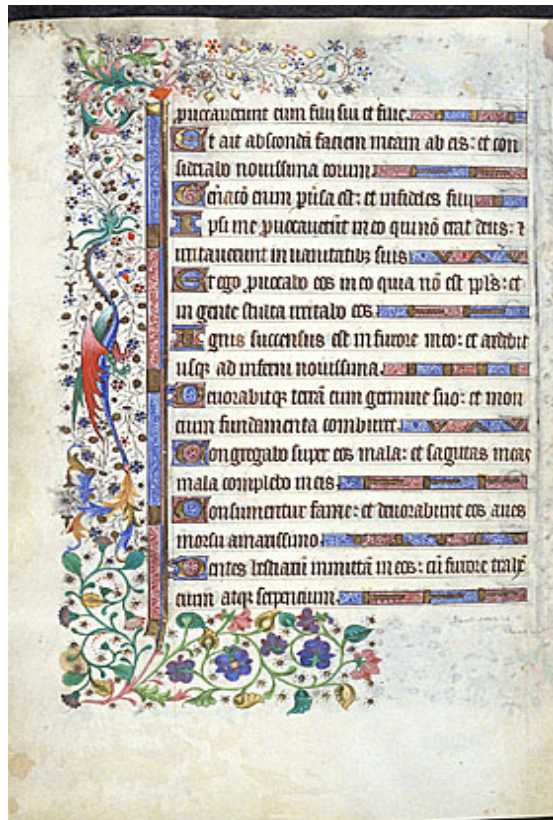 puocauerunt eum filii sui et filie.
Et ait abscondā faciem meam ab eis: et con
siderabo nouissima eorum.
Generatō enim puisa est: et infideles filii
Ipsi me puocauerūt in eo qui nō erat deus: ⁊
irritauerunt in uanitatibz suis
Et ego puocabo eos in eo quia nō est ppls: et
in gente stulta irritabo eos.
Ignis succensus est in furore meo: et ardebit
usqz ad inferni nouissima.
Deuorabitqz terrā cum germine suo: et mon
cium fundamenta comburet.
Congregabo super eos mala: et sagitas meas
mala complebo in eis.
Consumentur fame: et deuorabunt eos aues
morsu amarissimo.
Dentes bestiarū inmittā in eos: cū furore
cium atqz serpencium.